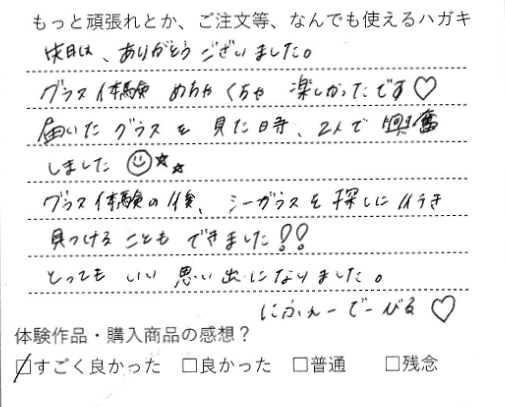 もっと頑張れとか、ご注文等、なんでも使えるハガキ
先日は、ありがとうございました。
グラス体験 めちゃくちゃ 楽しかったです♡
届いたグラスを見た時、2人で興奮
しました☺☆☆
グラス体験の後、シーガラスを探しに行き
見つけることもできました!!
とってもいい思い出になりました。
にふぇーでーびる♡
体験作品・購入商品の感想?
☑すごく良かった □良かった □普通 □残念